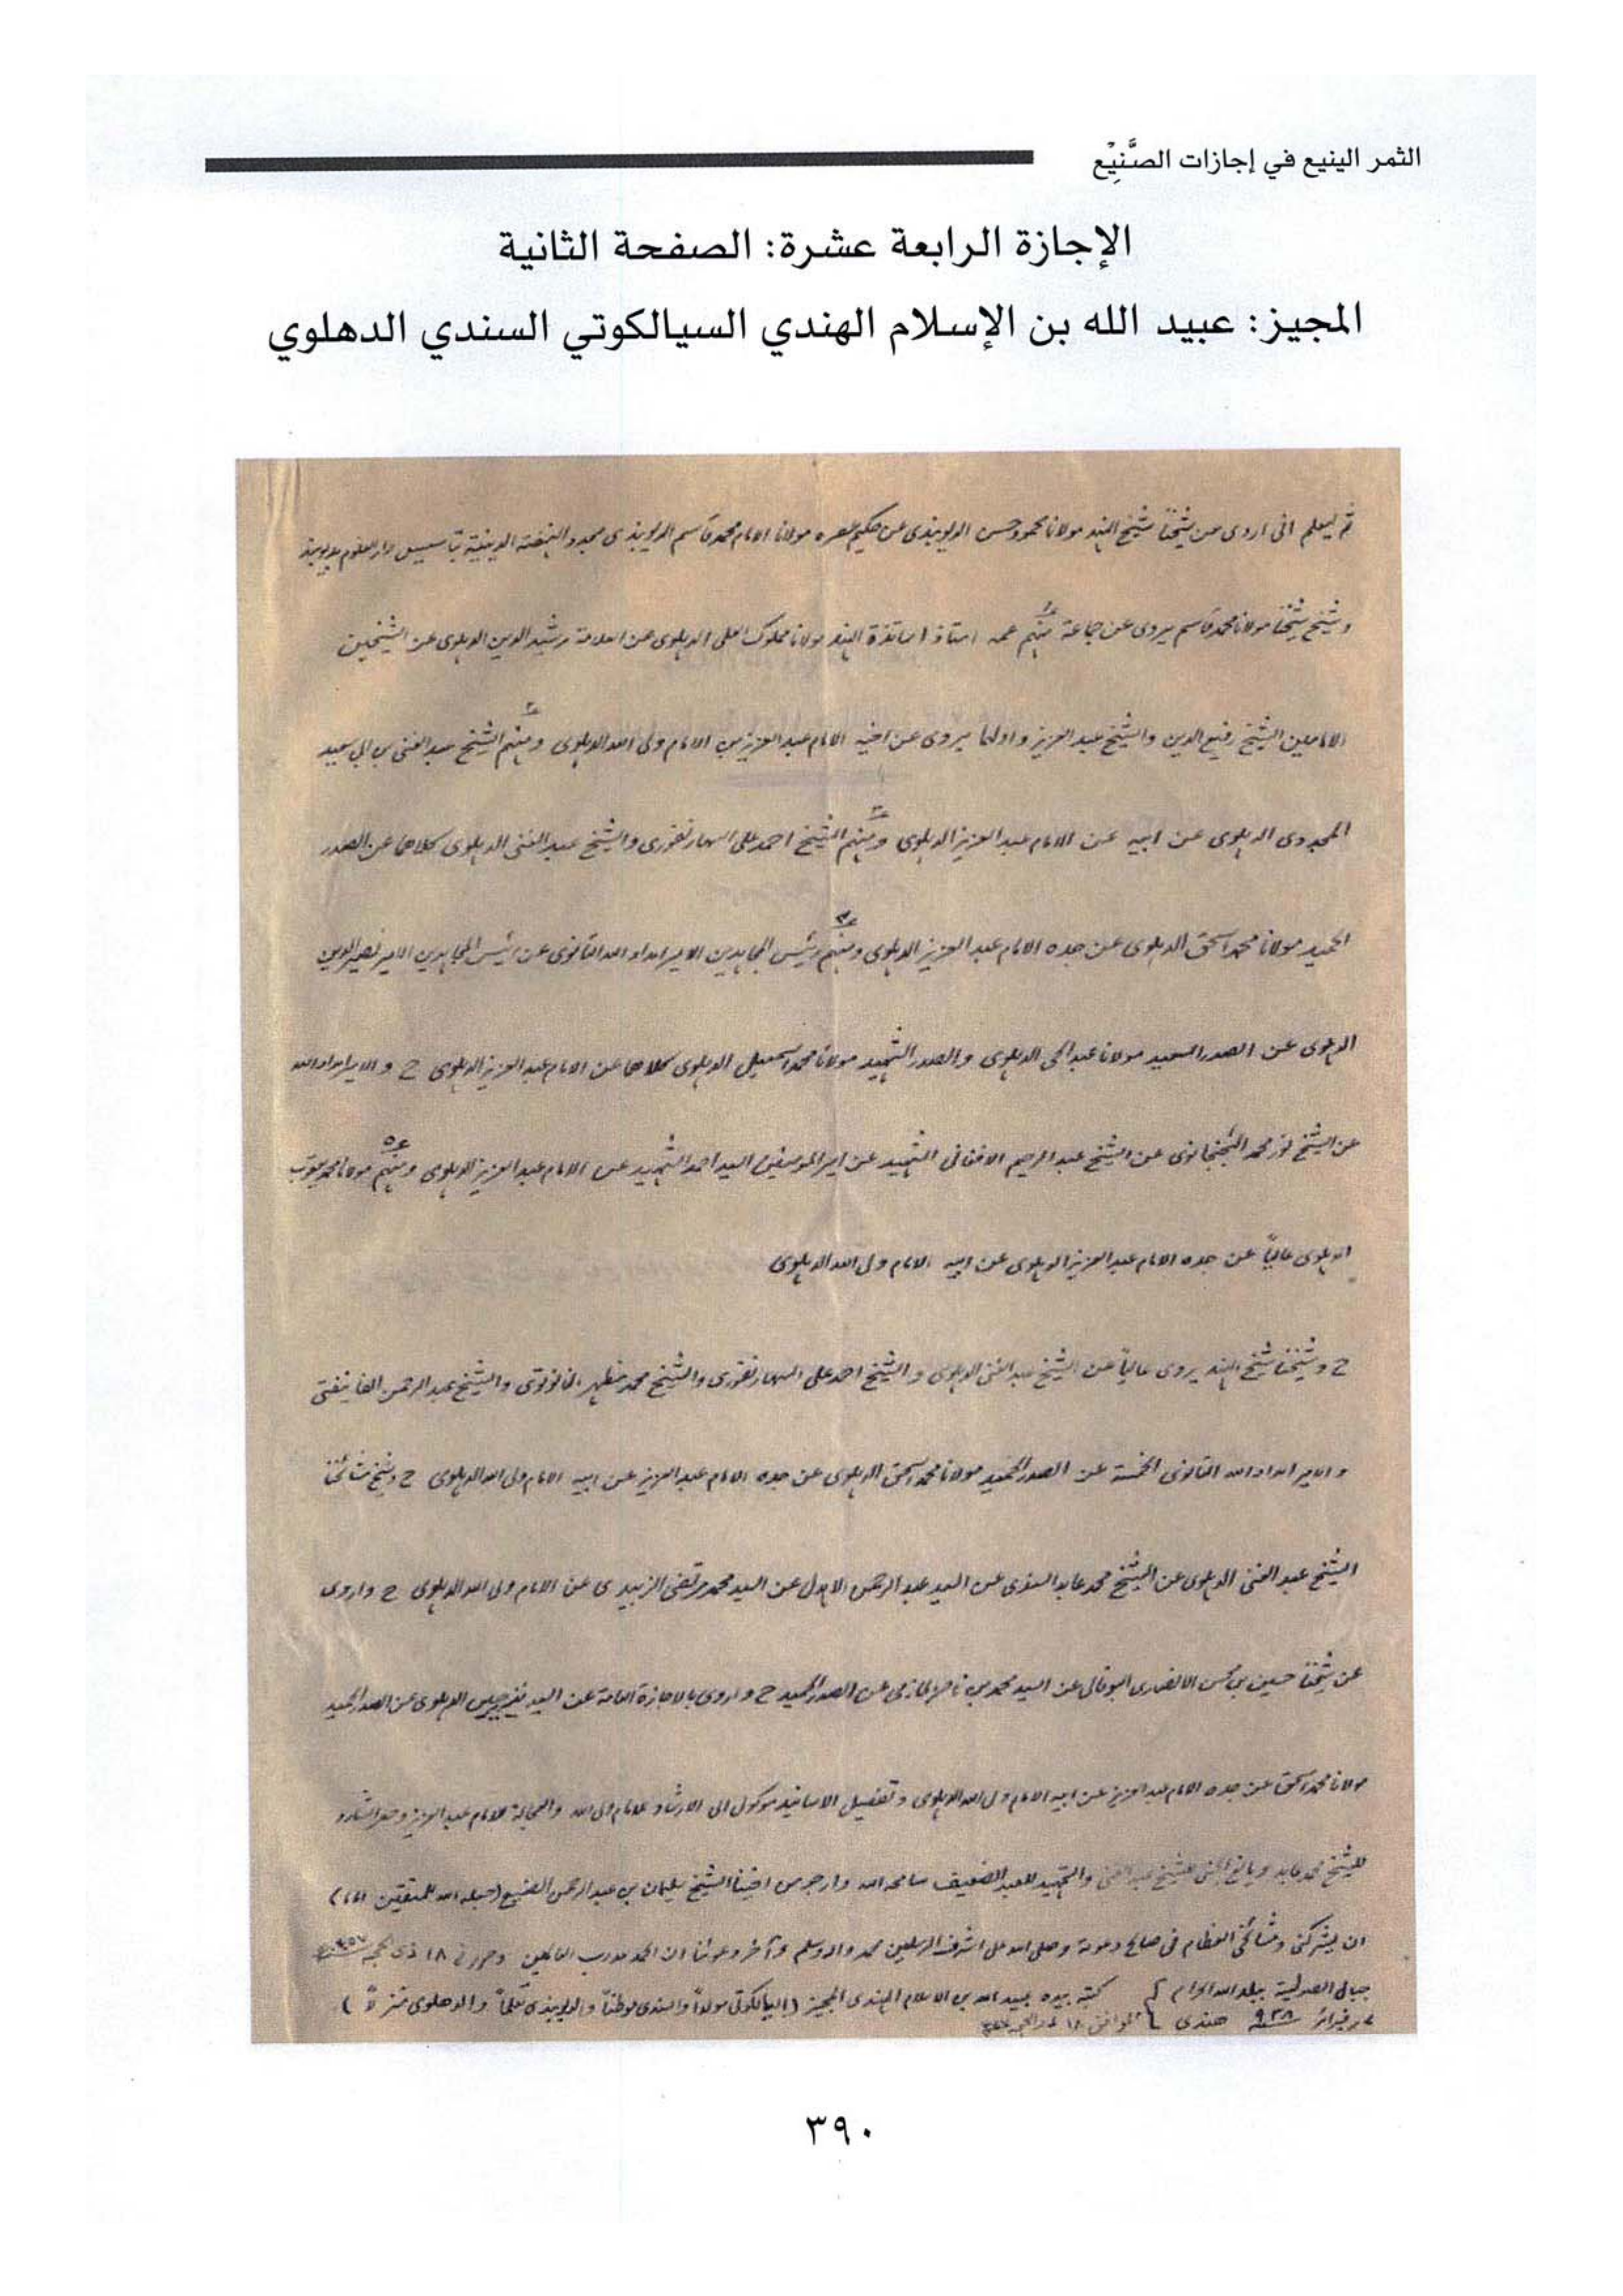 الثمر الينيع في إجازات الصَّنِيْع
الإجازة الرابعة عشرة: الصفحة الثانية
المجيز: عبيد الله بن الإسلام الهندي السيالكوتي السندي الدهلوي
ثم ليعلم انى اروى عن شيخنا شيخ الهند مولانا محمود حسن الديوبندى عن حكيم عصره مولانا الامام محمد قاسم الديوبندى مجدد النهضة الدينية بتأسيس دار العلوم بديوبند
وشيخ شيخنا مولانا محمد قاسم يروى عن جماعة منهم عمه استاذ اساتذة الهند مولانا مملوك العلى الدهلوى عن العلامة رشيد الدين الدهلوى عن الشيخين
الامامين الشيخ رفيع الدين والشيخ عبد العزيز واولهما يروى عن اخيه الامام عبد العزيز عن الامام ولى الله الدهلوى ومنهم الشيخ عبد الغنى بن ابى سعيد
المجددى الدهلوى عن ابيه عن الامام عبد العزيز الدهلوى ومنهم الشيخ احمد على السهارنفورى والشيخ عبد الغنى الدهلوى كلاهما عن الصدر
الحميد مولانا محمد اسحق الدهلوى عن جده الامام عبد العزيز الدهلوى ومنهم رئيس المجاهدين الامير امداد الله التانوى عن رئيس المجاهدين الامير نصير الدين
الدهلوى عن الصدر السعيد مولانا عبد الحى الدهلوى والصدر الشهيد مولانا محمد اسمعيل الدهلوى كلاهما عن الامام عبد العزيز الدهلوى ح والامير امداد الله
عن الشيخ نور محمد الجنجانوى عن الشيخ عبد الرحيم الافغانى الشهيد عن امير المومنين السيد احمد الشهيد عن الامام عبد العزيز الدهلوى ومنهم مولانا محمد يعقوب
الدهلوى عالياً عن جده الامام عبد العزيز الدهلوى عن ابيه الامام ولى الله الدهلوى
ح وشيخنا شيخ الهند يروى عالياً عن الشيخ عبد الغنى الدهلوى والشيخ احمد على السهارنفورى والشيخ محمد مظهر النانوتوى والشيخ عبد الرحمن الفانيفتى
والامير امداد الله التانوى الخمسة عن الصدر الحميد مولانا محمد اسحق الدهلوى عن جده الامام عبد العزيز عن ابيه الامام ولى الله الدهلوى ح وشيخ مشائخنا
الشيخ عبد الغنى الدهلوى عن الشيخ محمد عابد السندى عن السيد عبد الرحمن الاهدل عن السيد محمد مرتضى الزبيدى عن الامام ولى الله الدهلوى ح واروى
عن شيخنا حسين بن محسن الانصارى البوفالى عن السيد محمد بن ناصر الحازمى عن الصدر الحميد ح واروى بالاجازة العامة عن السيد نذير حسين الدهلوى عن الصدر الحميد
مولانا محمد اسحق عن جده الامام عبد العزيز عن ابيه الامام ولى الله الدهلوى وتفصيل الاسانيد موكول الى الارشاد للامام ولى الله والعجالة للامام عبد العزيز وحصر الشارد
للشيخ محمد عابد ويانع الجنى للشيخ عبد الغنى والتمهيد للعبد الضعيف سامحه الله وارجو من اخينا الشيخ سليمان بن عبد الرحمن الصنيع (جعله الله للمتقين اماما)
ان يشركنى ومشائخى العظام فى صالح دعوته وصلى الله على اشرف المرسلين محمد واله وسلم وآخر دعوانا ان الحمد لله رب العالمين وحرر فى ١٨ ذى الحجه
ببلد الله الحرام كتبه بيده عبيد الله بن الاسلام الهندى المجيز (السيالكوتى مولداً والسندى موطناً والديوبندى تعلماً والدهلوى منزلاً)
فبرائر هندى الموافق ١٨
٣٩٠